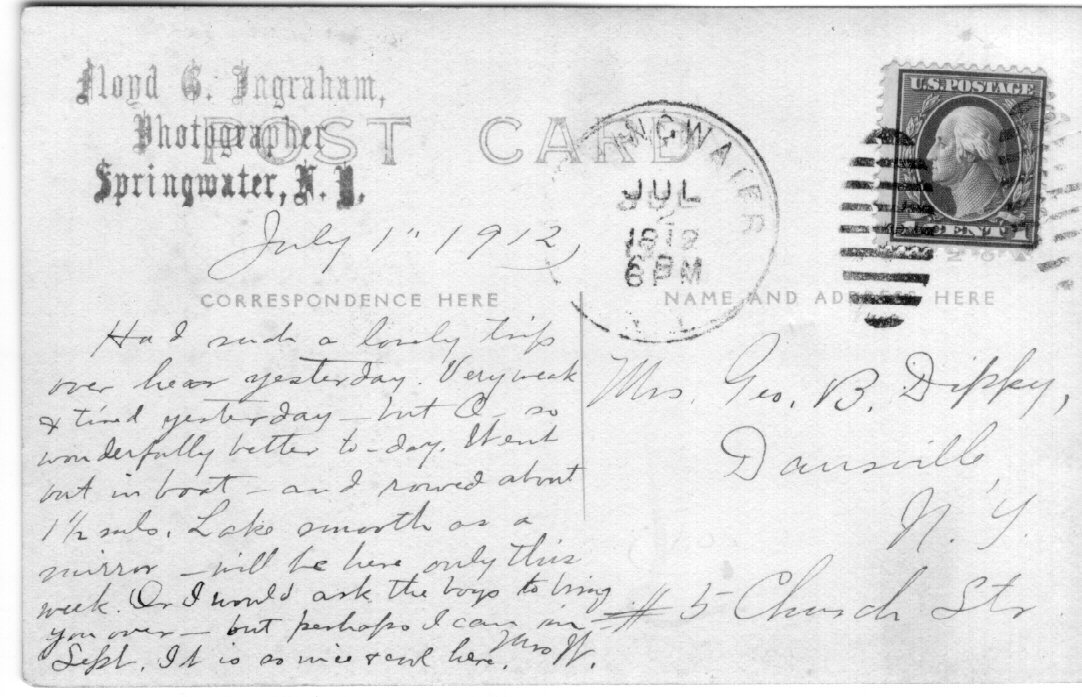 Floyd G. Ingraham,
Photographer
Springwater, N. Y.
POST CARD
NGWATER
JUL
1912
6 PM
U.S. POSTAGE
1 CENT 1
July 1" 1912,
CORRESPONDENCE HERE
NAME AND ADDRESS HERE
Had such a lovely trip
over hear yesterday. Very weak
& tired yesterday - but O - so
wonderfully better to-day. Went
out in boat - and rowed about
1½ mls. Lake smooth as a
mirror - will be here only this
week. Or I would ask the boys to bring
you over - but perhaps I can in
Sept. It is so nice & cool here. Mrs W.
Mrs. Geo. B. Dippy,
Dansville,
N. Y.
# 5 Church Str